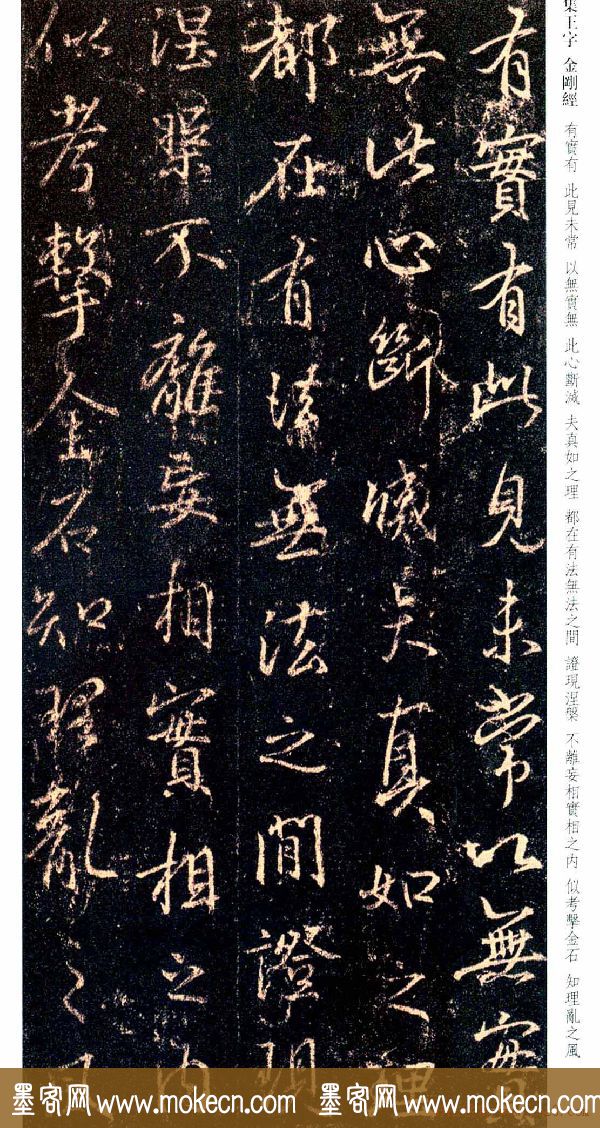 集王字 金剛經 有實有 此見未常 以無實無 此心斷滅 夫真如之理 都在有法無法之間 證現涅槃 不離妄相實相之內 似考擊金石 知理亂之風
有實有此見未常以無實
無此心斷滅夫真如之理
都在有法無法之間證現
涅槃不離妄相實相之內
似考擊金石知理亂之風
墨客网www.mokecn.com 墨客网www.mokecn.com